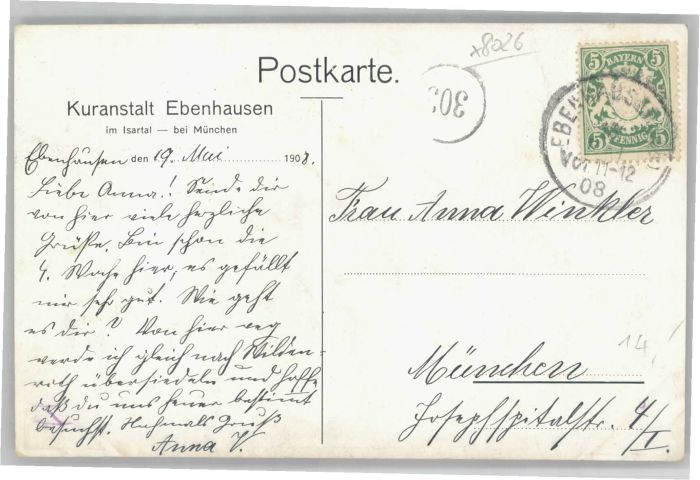 Postkarte.
Kuranstalt Ebenhausen
im Isartal — bei München
Ebenhausen den 19. Mai 1908.
Liebe Anna! Sende dir
von hier viele herzliche
Grüße. Bin schon die
4. Woche hier, es gefällt
mir sehr gut. Wie geht
es dir? Von hier weg
werde ich gleich nach Wilden-
roth übersiedeln und hoffe
daß du uns heuer bestimmt
besuchst. Nochmals Gruß
Anna V.
x8026
303
BAYERN
5 5
5 5
PFENNIG
EBENHAUSEN
Vor 11-12
08
Frau Anna Winkler
München
Josephspitalstr. 4/I.
14